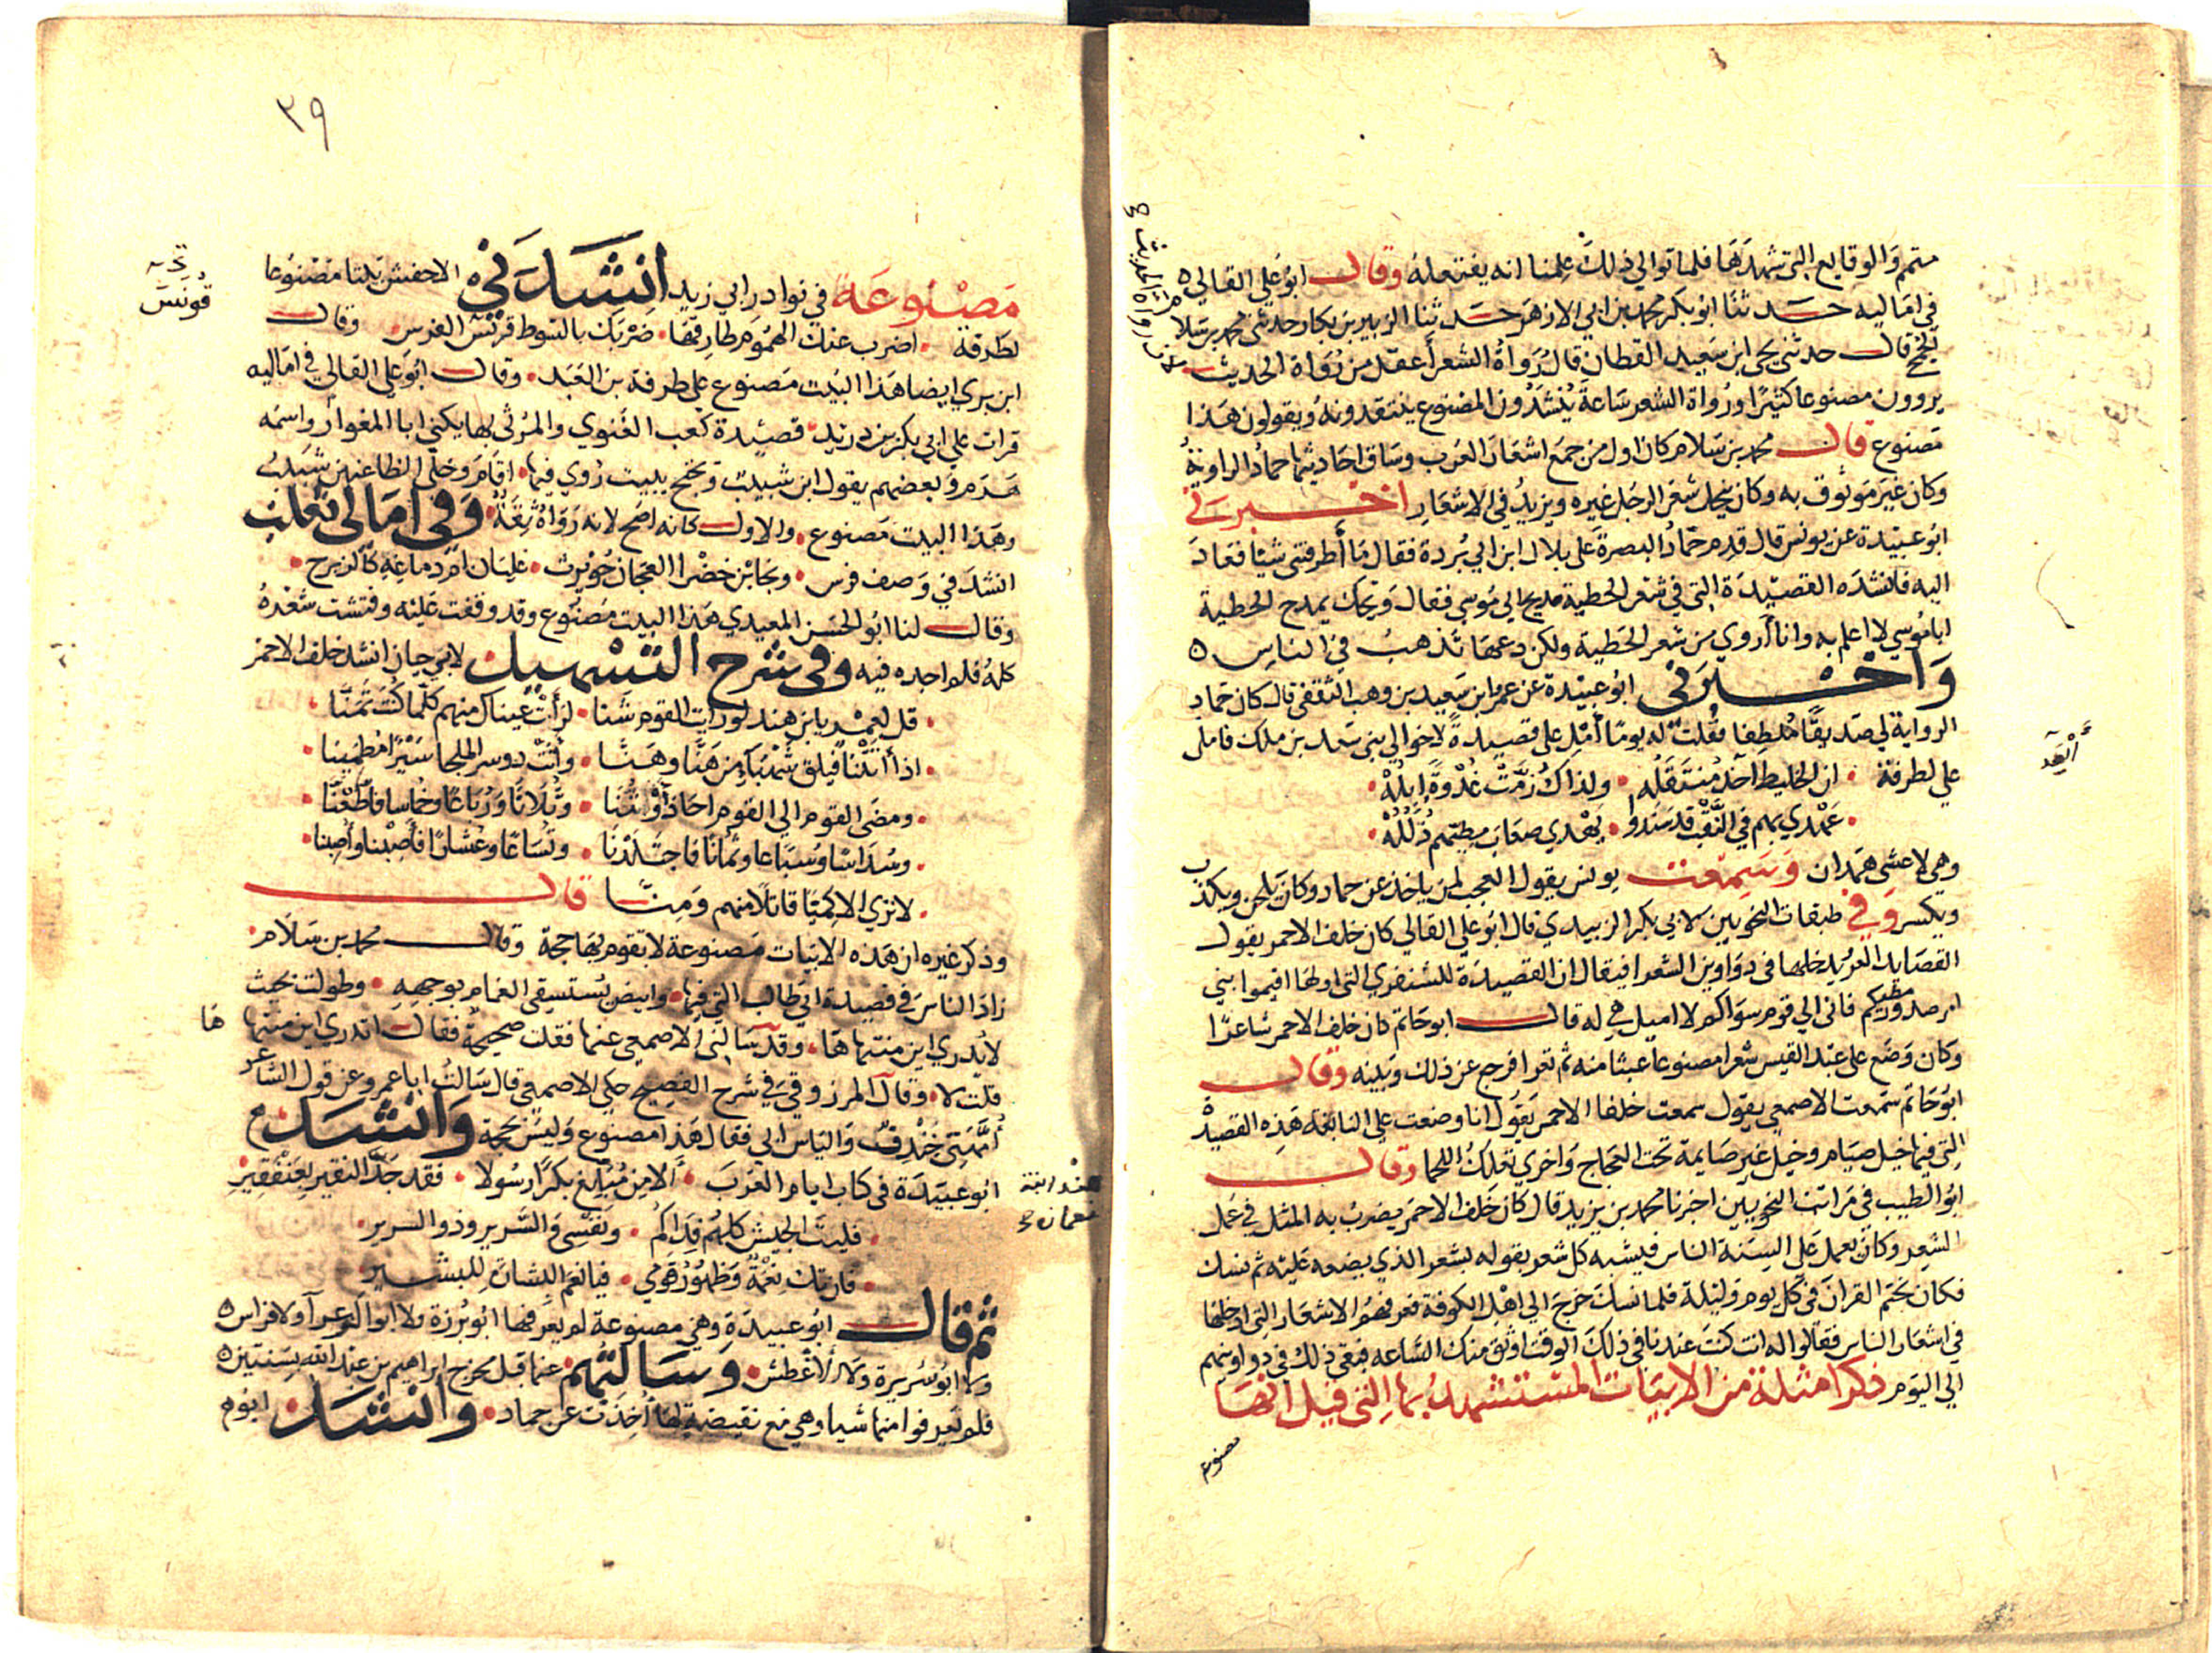 متمم والوقايع التي شهدها فلما توالي ذلك علمنا انه يفتعله وقال ابو علي القالي
في اماليه حدثنا ابو بكر محمد بن ابي الازهر حدثنا الزبير بن بكار حدثني محمد بن سلام
الجمحي قال حدثني يحي ابن سعيد القطان قال رواة الشعر أعقل من رواة الحديث
يروون مصنوعا كثيرا ورواة الشعر ساعة ينشدون المصنوع ينتقدونه ويقولون هذا
مصنوع قال محمد بن سلام كان اول من جمع اشعار العرب وساق احاديثها حماد الراوية
وكان غير موثوق به وكان ينحل شعر الرجل غيره ويزيد في الاشعار اخبرني
ابو عبيدة عن يونس قال قدم حماد البصرة علي بلال ابن ابي بردة فقال ما أطرفتني شيئا فعاد
اليه فانشده القصيدة التي في شعر الحطية مديح ابي موسي فقال ويحك يمدح الحطية
ابا موسي لا اعلم به وانا أروي من شعر الحطية ولكن دعها تذهب في الناس
واخبرني ابو عبيدة عن عمر ابن سعيد بن وهب الثقفي قال كان حماد
الرواية لي صديقا ملطفا فقلت له يوما أمل علي قصيدة لاخوالي بني سعد بن ملك فاملي
علي لطرفة • ان الخليط اجد منتقله • ولذاك زمت غدوة ابله •
• عهدي بهم في النقب قد سندوا • يهدي صعاب مطيهم ذلله •
وهي لاعشي همدان وسمعت يونس يقول العجب لمن ياخذ عن حماد وكان يلحن ويكذب
ويكسر وفي طبقات النحويين لابي بكر الزبيدي قال ابو علي القالي كان خلف الاحمر يقول
القصايد الغر يدخلها في دواوين الشعرا فيقال ان القصيدة للشنفري التي اولها اقيموا بني
امي صدور مطيكم فاني الي قوم سواكم لاميل هي له قال ابو حاتم كان خلف الاحمر شاعرا
وكان وضع علي عبد القيس شعرا مصنوعا عبثا منه ثم تقرا فرجع عن ذلك وبينه وقال
ابو حاتم سمعت الاصمعي يقول سمعت خلفا الاحمر يقول انا وضعت علي النابغة هذه القصيدة
التي فيها خيل صيام وخيل غير صايمة تحت العجاج واخري تعلك اللجما وقال
ابو الطيب في مراتب النحويين اخبرنا محمد بن يزيد قال كان خلف الاحمر يضرب به المثل في عمل
الشعر وكان يعمل علي السنة الناس فيشبه كل شعر يقوله بشعر الذي يضعه عليه ثم نسك
فكان يختم القران في كل يوم وليلة فلما نسك خرج الي اهل الكوفة فعرفهم الاشعار التي ادخلها
في اشعار الناس فقالوا له انت كنت عندنا في ذلك الوقت اوثق منك الساعه فبقي ذلك في دواوينهم
الي اليوم ذكر امثلة من الابيات المستشهد بها التي قيل انها
مصنوع
أبعد
٣٩
مصنوعة في نوادر ابي زيد انشدني الاخفش بيتا مصنوعا
لطرفة • اضرب عنك الهموم طارقها • ضربك بالسوط قونس الفرس • وقال
ابن بري ايضا هذا البيت مصنوع علي طرفة بن العبد • وقال ابو علي القالي في اماليه
قرات علي ابي بكر بن دريد • قصيدة كعب الغنوي والمرثي بها يكني ابا المغوار واسمه
هرم وبعضهم يقول ابن شبيب وتحتج ببيت روي فيها • اقام وخلي الظاعنين شبيب
وهذا البيت مصنوع • والاول كانه اصح لانه رواه ثقة • وفي امالي ثعلب
انشد في وصف فرس •
وقال لنا ابو الحسن المعيدي هذا البيت مصنوع وقد وقفت عليه وفتشت شعره
كله فلم اجده فيه وفي شرح التسهيل لابي حيان انشد خلف الاحمر
• قل لعمرو يا بن هند لو رايت القوم شنا • لرأت عيناك منهم كلما كنت تمنا •
• اذ أتتنا فيلق شهباء من هنا وهنا • وأتت دوسر الملحا سيرا مطمئنا •
• ومضي القوم الي القوم احاد أو ثنا • وثلاثا ورباعا وخماسا فاطعنا •
• وسداسا وسباعا وثمانا فاجتلدنا • وتساعا وعشارا فأصبنا وأصبنا •
• لا تري الا كميا قاتلا منهم ومنا قال
وذكر غيره ان هذه الابيات مصنوعة لا تقوم بها حجة وقال محمد بن سلام •
زاد الناس في قصيدة ابي طالب التي فيها • وابيض يستسقي الغمام بوجهه • وطولت بحيث
لا يدري اين منتهاها • وقد سالني الاصمعي عنها فقلت صحيحة فقال اتدري اين منتهاها
قلت لا • وقال المرزوقي في شرح الفصيح حكي الاصمعي قال سالت ابا عمرو عن قول الشاعر
أمهتي خندف والياس ابي فقال هذا مصنوع وليس بحجة وانشد
ابو عبيدة في كتاب ايام العرب • ألا من مبلغ بكرا رسولا • فقد جد النفير بعنقفير •
• فليت الجيش كلهم فداكم • ونفسي والسرير وذو السرير •
• فان تك نعمة وظهور قومي • فيا نعم البشارة للبشير
ثم قال ابو عبيدة وهي مصنوعة لم يعرفها ابو بردة ولا ابو الزعرا ولا فراس
ولا ابو سريرة ولا الاغطش • وسالتهم عنها قبل مخرج ابراهيم بن عبد الله بسنتين
فلم يعرفوا منها شيا وهي مع نقيضة لها أخذت عن حماد • وانشد ابو م
قونس
ها
هند ابنة
نعمان